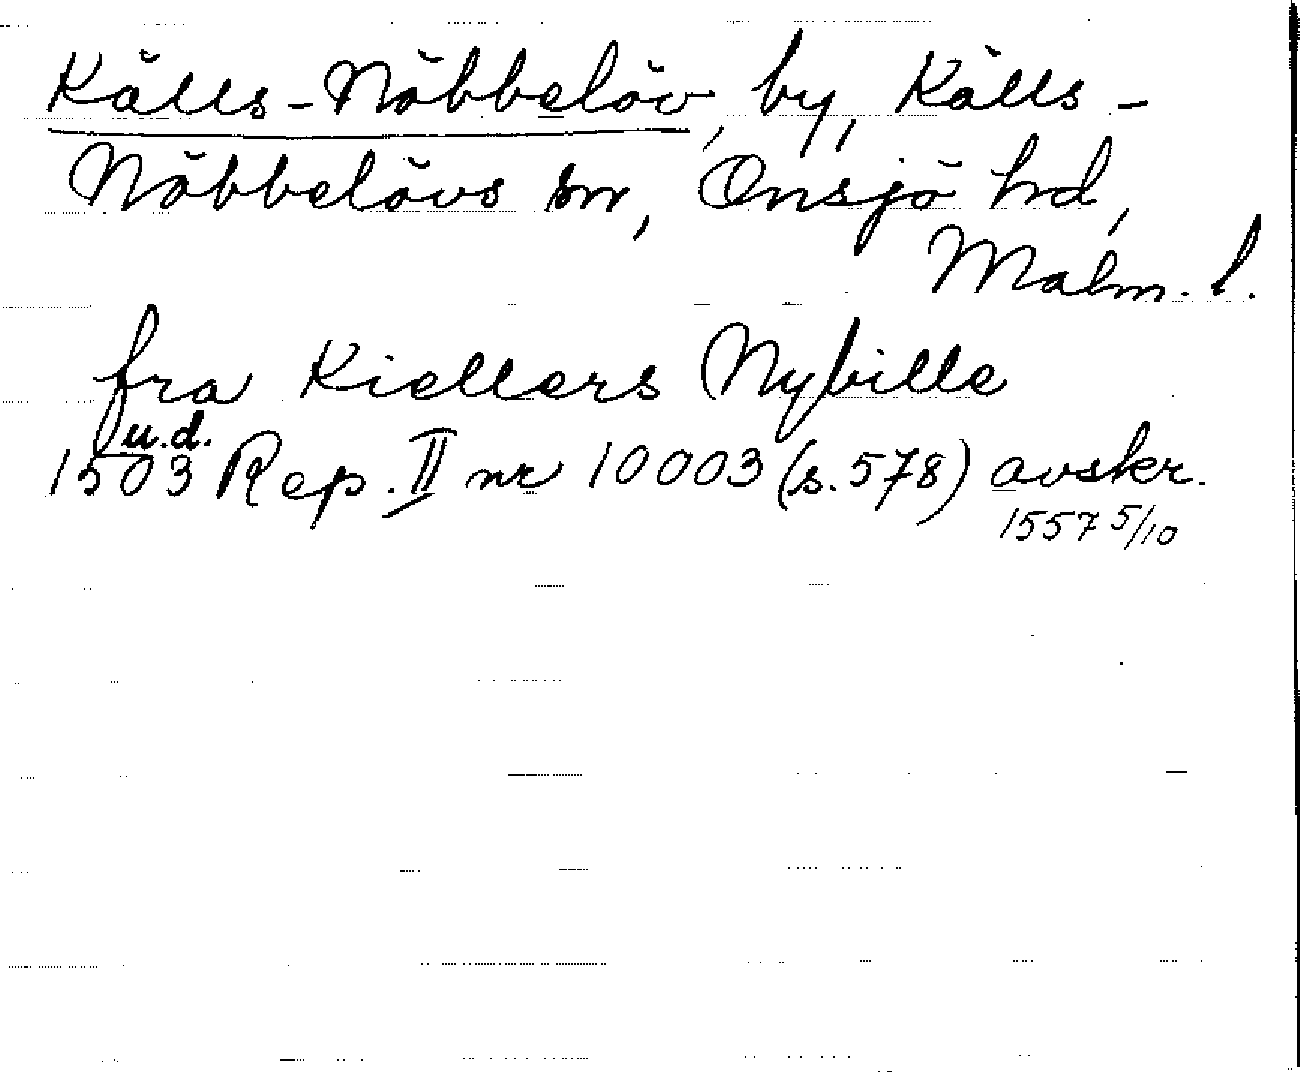 Källs-Nöbbelöv, by, Källs-
Nöbbelövs sn, Onsjö hd,
Malm. l.
fra Kiellers Nybille
u.d.
1503 Rep. II nr 10003 (s. 578) avskr.
1557 5/10